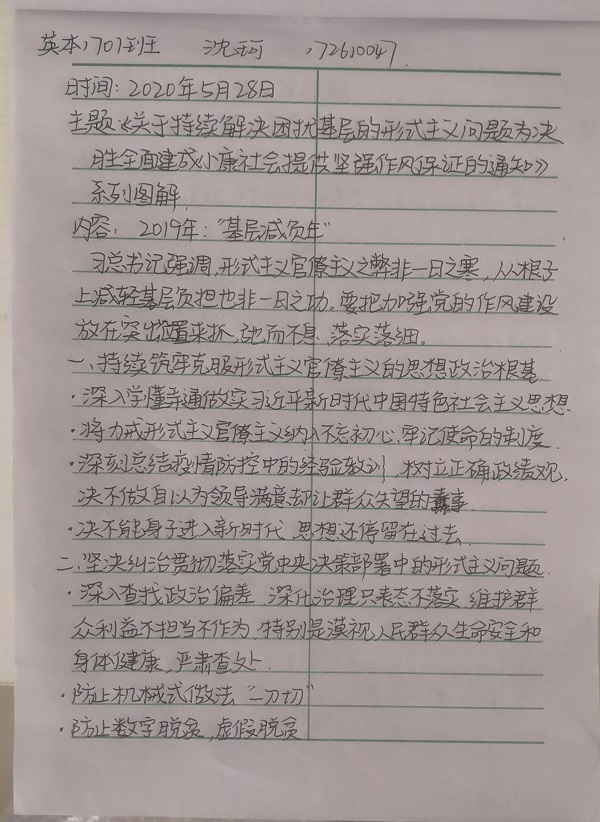 英本1701班 沈珂 172610047.
时间:2020年5月28日
主题:《关于持续解决困扰基层的形式主义问题为决
胜全面建成小康社会提供坚强作风保证的通知》
系列图解
内容: 2019年:“基层减负年”
习总书记强调,形式主义官僚主义之弊非一日之寒,从根子
上减轻基层负担也非一日之功。要把加强党的作风建设
放在突出位置来抓,驰而不息,落实落细。
一、持续筑牢克服形式主义官僚主义的思想政治根基
·深入学懂弄通做实习近平新时代中国特色社会主义思想
·将力戒形式主义官僚主义纳入不忘初心、牢记使命的制度
·深刻总结疫情防控中的经验教训,树立正确政绩观,
决不做自以为领导满意却让群众失望的蠢事
·决不能身子进入新时代,思想还停留在过去
二、坚决纠治贯彻落实党中央决策部署中的形式主义问题
·深入查找政治偏差,深化治理只表态不落实,维护群
众利益不担当不作为,特别是漠视人民群众生命安全和
身体健康,严肃查处.
·防止机械式做法“一刀切”
·防止数字脱贫,虚假脱贫